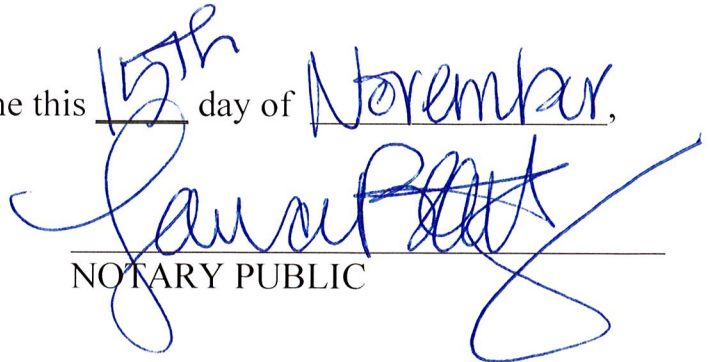 ne this 15th day of November,
NOTARY PUBLIC